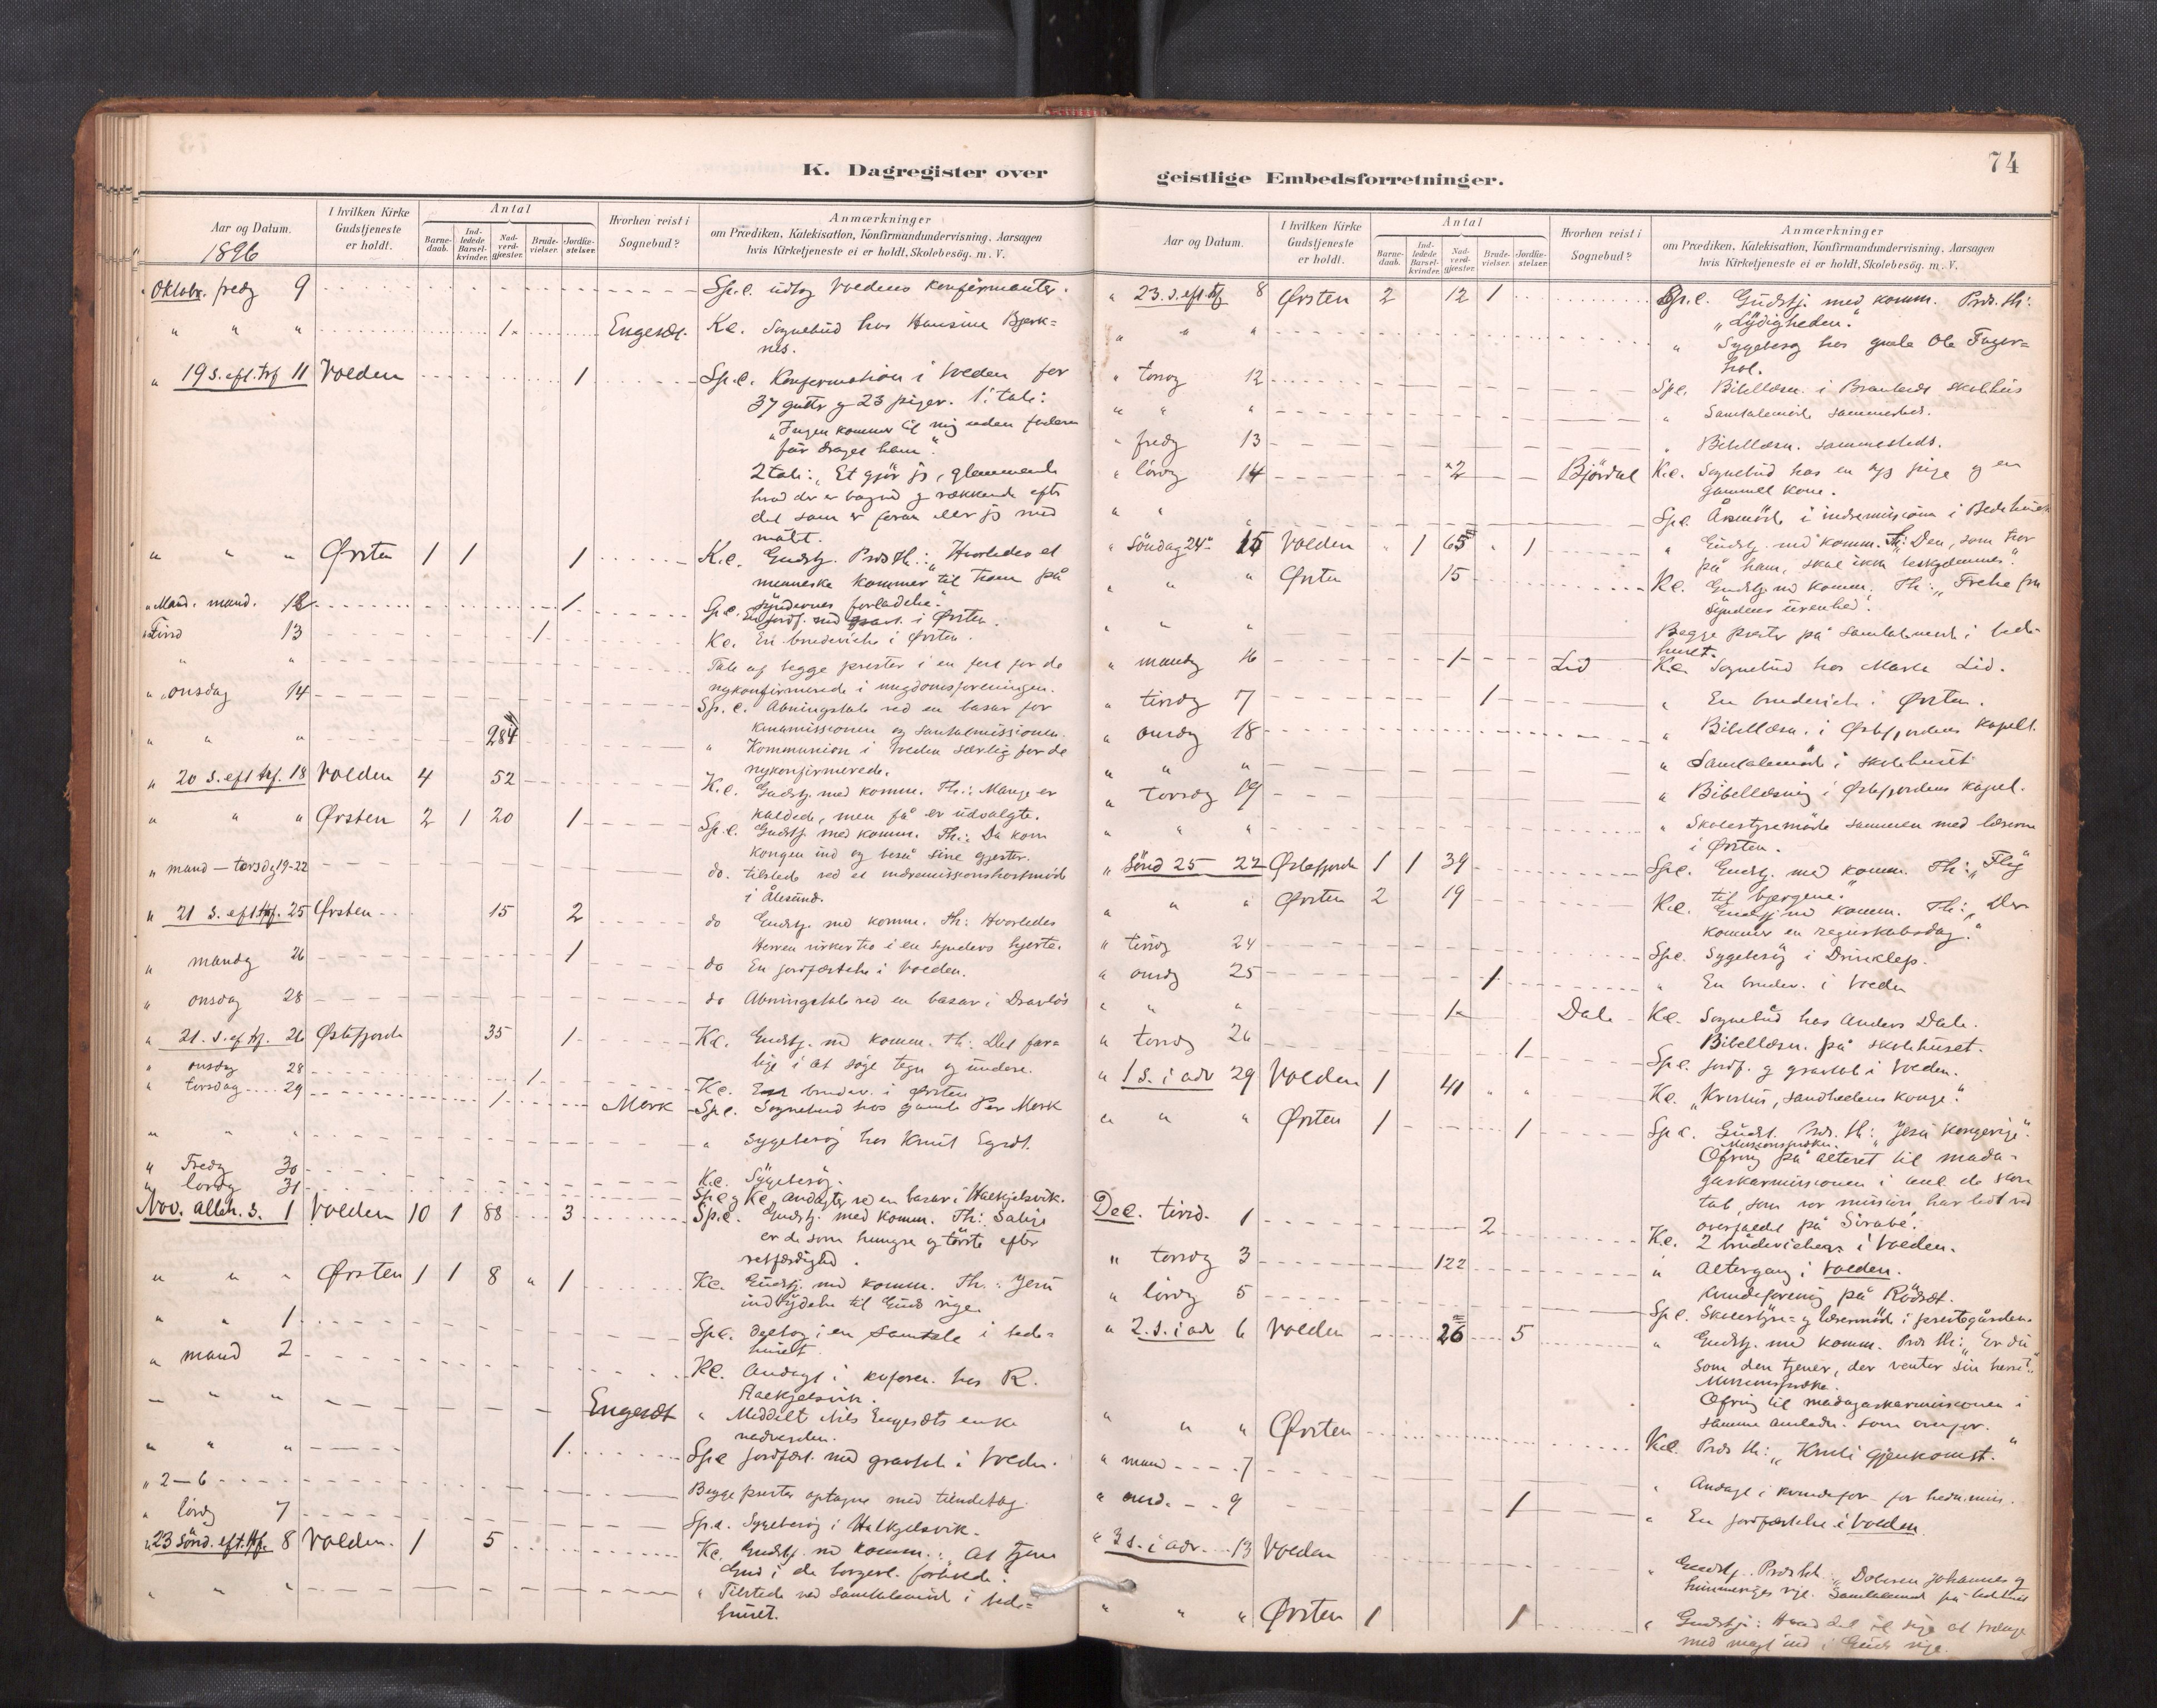 74
K. Dagregister over
geistlige Embedsforretninger.
Aar og Datum.
1896
I hvilken Kirke Gudstjeneste er holdt.
Antal
Barne-daab.
Ind-ledede Barsel-kvinder.
Nad-verd-gjæster.
Brude-vielser.
Jordfæ-stelser.
Hvorhen reist i Sognebud?
Anmærkninger
om Prædiken, Katekisation, Konfirmandundervisning. Aarsagen
hvis Kirketjeneste ei er holdt, Skolebesög. m. V.
Oktobr. fredg 9 Sp.c. udtog Voldens konfirmanter.
" " " 1 Engeset. K.c. Sognebud hos Hansine Bjerk=
nes.
" 19 s. eft. trf 11 Volden 1 Sp.c. Konfirmation i Volden for
37 gutter og 23 piger. 1. tale:
"Ingen kommer til mig uden faderen
får draget ham".
2 tale: "Et gjör jeg, glemmende
hvad der er bagved og rækkende efter
det som er foran iler jeg mod
målet.
" " " Ørsten 1 1 1 K.c. Gudstj. Præd. th.: "Hvorledes et
menneske kommer til troen på
syndernes forladelse."
" Mand. mand. 12 1 Sp.c. En jordf. med gravt. i Ørsten.
" Tirsd 13 1 K.c. En brudevielse i Ørsten.
" " Tale af begge prester i en fest for de
nykonfirmerede i ungdomsforeningen.
" onsdag 14 Sp.c. Åbningstale ved en basar for
kinamissionen og santalmissionen.
" " " 284 " Kommunion i Volden særlig for de
nykonfirmerede.
" 20 s. eft trf. 18 Volden 4 52 K.c. Gudstj. med komm. Th.: Mange er
kaldede, men få er udvalgte.
" " " Ørsten 2 1 20 1 Sp.c. Gudstj. med komm. Th.: Da kom
kongen ind og beså sine gjester.
" mand — torsdg 19-22 do. tilstede ved et indremissionshöstmöde
i Ålesund.
" 21 s. eft trf. 25 Ørsten 15 2 do Gudstj. med komm. Th: Hvorledes
Herren virker tro i en synders hjerte.
" mandg 26 1 do En jordfæstelse i Volden.
" onsdag 28 do Åbningstale ved en basar i Dravlös
" 21. s. ef trf. 26 Østefjorde 35 1 K.c. Gudstj. md komm. Th: Det far=
lige i at söge tegn og undere.
" onsdg 28 1 K.c. En brudev. i Ørsten
" torsdag 29 1 Mork Sp.c. Sognebud hos gamle Per Mork
" " " " Sygebesög hos Knut Egset.
" Fredg 30 K.c. Sygebesög.
" lördg 31 Sp.c. og K.c. andagter ved en basar i Halkjelsvik.
Nov. alleh. s. 1 Volden 10 1 88 3 Sp.c. Gudstj. med komm. Th: Salige
er de som hungre og törste efter
retfærdighed.
" " " Ørsten 1 1 8 " 1 K.c. Gudstj. md komm. Th.: Jesu
indbydelse til Guds rige.
" " 1 Sp.c. deltog i en samtale i bede=
huset
" mand 2 K.c. Andagt i kvforen. hos R.
Halkjelsvik.
" " " Engeset " Meddelt Nils Engesets enke
nadverden.
" " " 1 Sp.c jordfæst. med gravtale i Volden.
" 2—6 Begge prester optagne med tiendetag.
" lördg 7 Sp.c. Sygebesög i Halkjelsvik.
" 23 sönd. eft. trf. 8 Volden. 1 5 K.c. Gudstj. md komm.: "At tjene
Gud i de borgerl. forhold".
" " " " Tilstede ved samtalemöde i bede=
huset.
Aar og Datum.
I hvilken Kirke Gudstjeneste er holdt.
Antal
Barne-daab.
Ind-ledede Barsel-kvinder.
Nad-verd-gjæster.
Brude-vielser.
Jordfæ-stelser.
Hvorhen reist i Sognebud?
Anmærkninger
om Prædiken, Katekisation, Konfirmandundervisning. Aarsagen
hvis Kirketjeneste ei er holdt, Skolebesög. m. V.
" 23. s. eft. trf 8 Ørsten 2 12 1 Sp.c. Gudstj. med komm. Præd. th:
"Lydigheden."
" " " " Sygebesög hos gamle Ole Fager=
hol.
" torsdg 12 Sp.c. Bibellæsn. i skolehus
" " " " Samtalemöde sammesteds.
" fredg 13 " Bibellæsn. sammesteds.
" lördg 14 2 Björdal K.c. Sognebud hos en syg pige og en
gammel kone.
" " " Sp.c. Årsmöde i indremissionen i Bedehuset
" Söndag 24" 15 Volden " 1 65 " 1 " Gudstj. med komm. Th: "Den, som tror
på ham, skal ikke beskjæmmes".
" " " Ørsten 15 K.c. Gudstj. md komm. Th.: "Frelse fra
syndens urenhed".
" " " Begge prester på samtalemöde i bede-
huset.
" mandg 16 1 Lid K.c. Sognebud hos Marta Lid.
" tirsdg 17 1 " En brudevielse i Ørsten.
" onsdg 18 " Bibellæsn. i Østefjordens kapell.
" " " " Samtalemöde i skolehuset
" torsdg 19 " Bibellæsning i Østefjordens kapel.
" " " " Skolestyremöde sammen med lærerne
i Ørsten.
" Sönd 25 22 Østefjorde 1 1 39 Sp.c. Gudstj. med komm. Th: "Fly
til bjergene".
" " " Ørsten 2 19 K.c. Gudstj. md komm. Th: "Der
kommer en regnskabsdag."
" tirsdg 24 Sp.c. Sygebesög i
" onsdg 25 1 " En brudev. i Volden
" " " 1 Dale K.c. Sognebud hos Anders Dale.
" torsdg 26 Bibellæsn. på skolehuset.
1 Sp.c. Jordf. og gravtale i Volden.
" 1 s. i adv 29 Volden 1 41 " " K.c. "Kristus, sandhedens konge".
" " " Ørsten 1 1 Sp.c. Gudst. Præd. th: "Jesu kongerige".
Missionspræken.
Ofring på alteret til mada=
gaskarmissionen i anl. de store
tab, som vor mission har lidt ved
overfaldet på Sirabe.
Dec. tirsd. 1 2 K.c. 2 brudevielser i Volden.
" torsdg 3 122 " Altergang i Volden.
" lördg 5 Kvindeforening på Rödset.
Sp.c. Skolestyre= og lærermöde i prestegården.
" 2. s. i adv 6 Volden 26 5 " Gudstj. med komm. Præd. th: "Er du
som den tjener, der venter sin herre?"
Missionspræke.
Ofring til madagaskarmissionen i
samme anledn. som ovenfor.
" " " Ørsten K.c. Præd. th: "Kristi gjenkomst."
" mand 7 " Andagt i kvindefor. for hedn. mis.
" onsd. 9 1 " En jordfæstelse i Volden.
" 3 s. i adv. 13 Volden " Gudstj. Præd. th. "Döberen Johannes og
himmeriges rige. Samtalemöde på bedehuset
" " " Ørsten 1 1 " Gudstj: Hvad det vil sige at trænge
med magt ind i Guds rige.